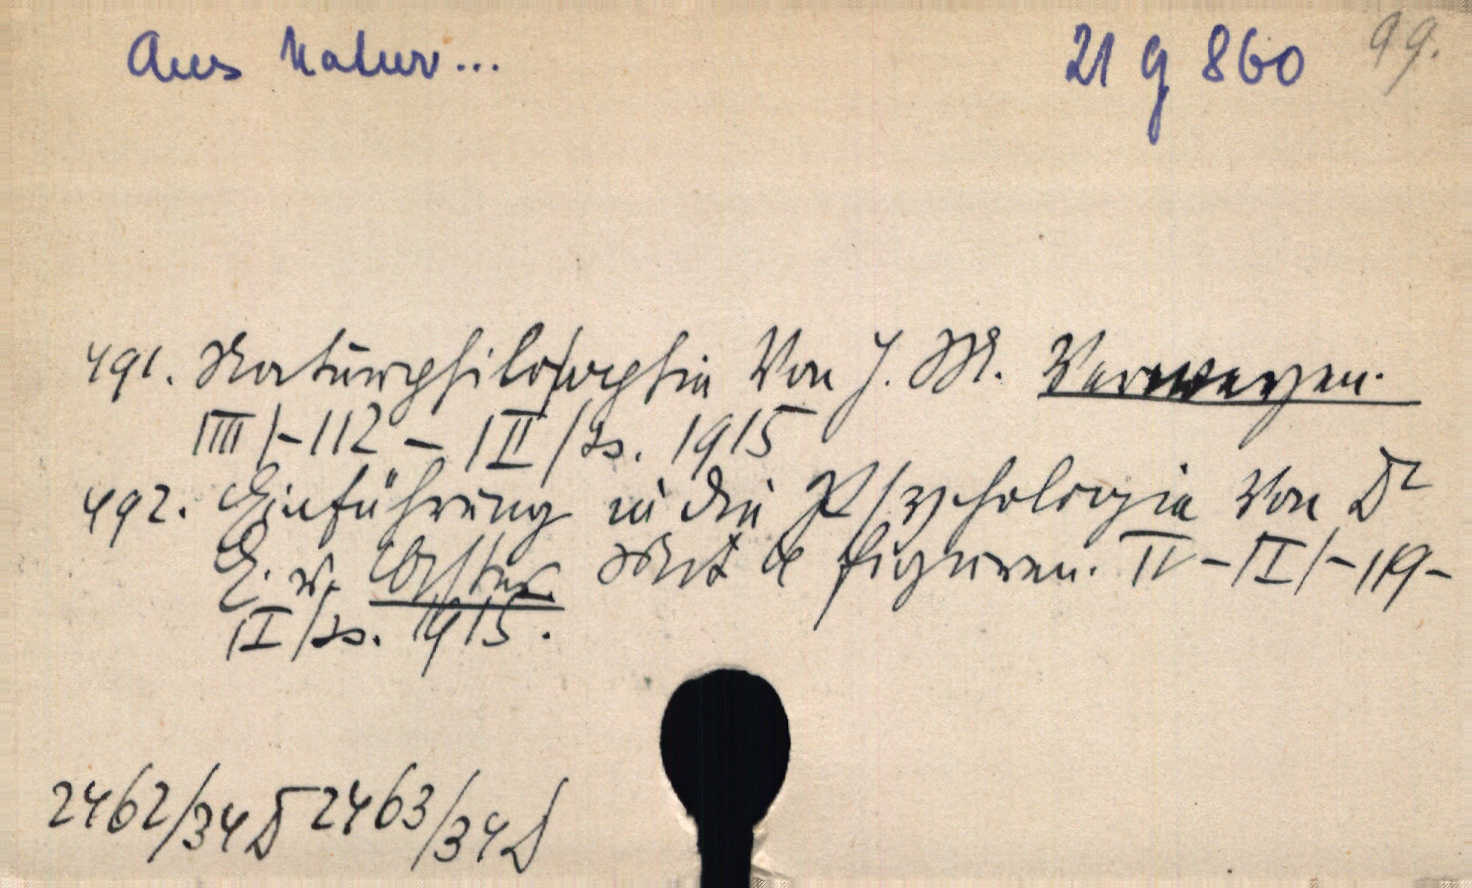 Aus Natur... 21 g 860 99.
491. Naturphilosophie Von J. M. Verweyen.
|III|-112-|II|8s. 1915
492. Einführung in die Psychologie Von Dr
E. v. Aster Mit 4 Figuren. IV-|I|-119-
|I|8s. 1915.
2462/34D 2463/34D